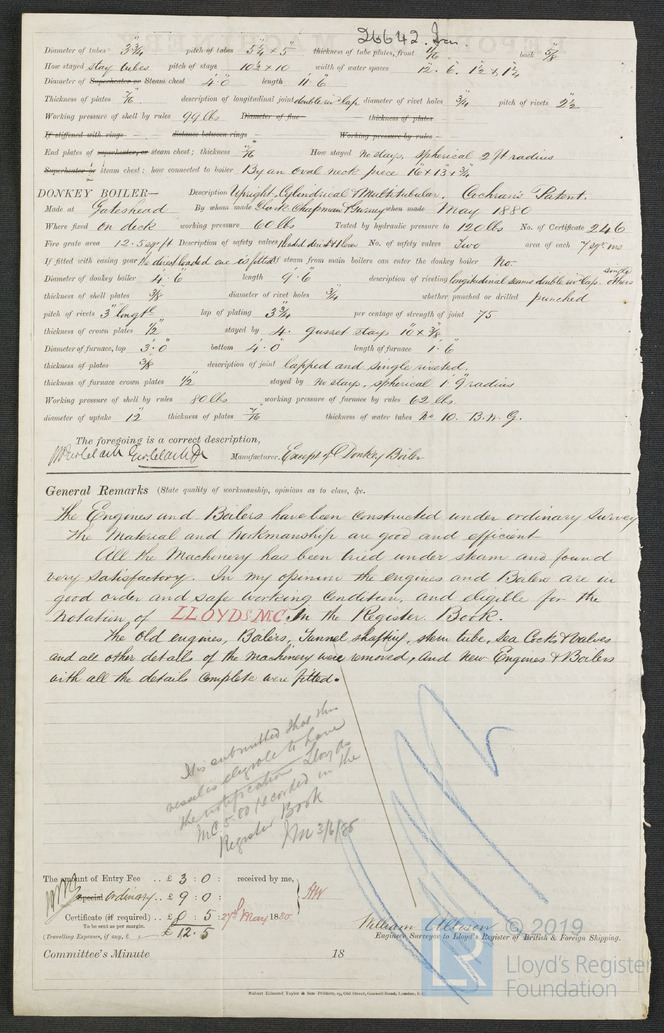 26642 Irn.
Diameter of tubes 3 3/4" pitch of tubes 5 1/4 x 5" thickness of tube plates, front 11/16" back 5/8"
How stayed stay tubes pitch of stays 10 1/2 x 10 width of water spaces 12. 6. 1 1/2 x 1 1/4
Diameter of Superheater or Steam chest 4'.0" length 11'.6"
Thickness of plates 7/16" description of longitudinal joint double riv lap diameter of rivet holes 3/4" pitch of rivets 2 1/2"
Working pressure of shell by rules 99 lbs Diameter of flue – thickness of plates
If stiffened with rings – distance between rings – Working pressure by rules –
End plates of superheater, or steam chest; thickness 7/16" How stayed No stays, spherical 2 ft radius
Superheater or steam chest; how connected to boiler By an oval neck piece 16 x 13 x 3/4
DONKEY BOILER— Description Upright Cylindrical & Multitubular. Cochran's Patent.
Made at Gateshead By whom made Clark Chapman & Gurney when made May 1880
Where fixed on deck working pressure 60 lbs Tested by hydraulic pressure to 120 lbs No. of Certificate 246
Fire grate area 12.5 sq ft Description of safety valves No. of safety valves two area of each 7 sq ins
If fitted with easing gear No direct loaded one is fitted If steam from main boilers can enter the donkey boiler No.
Diameter of donkey boiler 4'.6" length 9'.6" description of riveting longitudinal seams double riv lap. others single
thickness of shell plates 3/8" diameter of rivet holes 3/4" whether punched or drilled punched
pitch of rivets 3" longtl lap of plating 3 3/4" per centage of strength of joint 75
thickness of crown plates 1/2" stayed by 4. gusset stays 10 x 3/8"
Diameter of furnace, top 3'.0" bottom 4'.0" length of furnace 1'.6"
thickness of plates 3/8" description of joint lapped and single riveted.
thickness of furnace crown plates 1/2" stayed by No stays, spherical 1' 9" radius
Working pressure of shell by rules 80 lbs working pressure of furnace by rules 62 lbs.
diameter of uptake 12" thickness of plates 7/16" thickness of water tubes No 10. B.W.G.
The foregoing is a correct description,
Manufacturer. Except of Donkey Boiler
General Remarks (State quality of workmanship, opinions as to class, &c.
The Engines and Boilers have been constructed under ordinary Survey
The Material and Workmanship are good and efficient
All the Machinery has been tried under steam and found
very satisfactory. In my opinion the engines and Boilers are in
good order and safe working Condition, and eligible for the
Notation of LLOYDS M.C. In the Register Book.
The Old engines, Boilers, Tunnel shafting, stern tube, Sea Cocks & Valves
and all other details of the Machinery were removed, and New Engines & Boilers
with all the details Complete were fitted.
It is submitted that this
vessel is eligible to have
the notification Lloyds
M.C 5.80 recorded in the
Register Book
3/6/80
The amount of Entry Fee .. £ 3 : 0 : received by me,
Special Ordinary .. £ 9 : 0 :
Certificate (if required) .. £ 0 : 5 : 27th May 1880
To be sent as per margin.
(Travelling Expenses, if any, £ £12.5
William Allison
Engineer Surveyor to Lloyd's Register of British & Foreign Shipping.
Committee's Minute 18
Robert Edmund Taylor & Son Printers, 19, Old Street, Goswell Road, London, E.C.
© 2019
LR
Lloyd's Register
Foundation